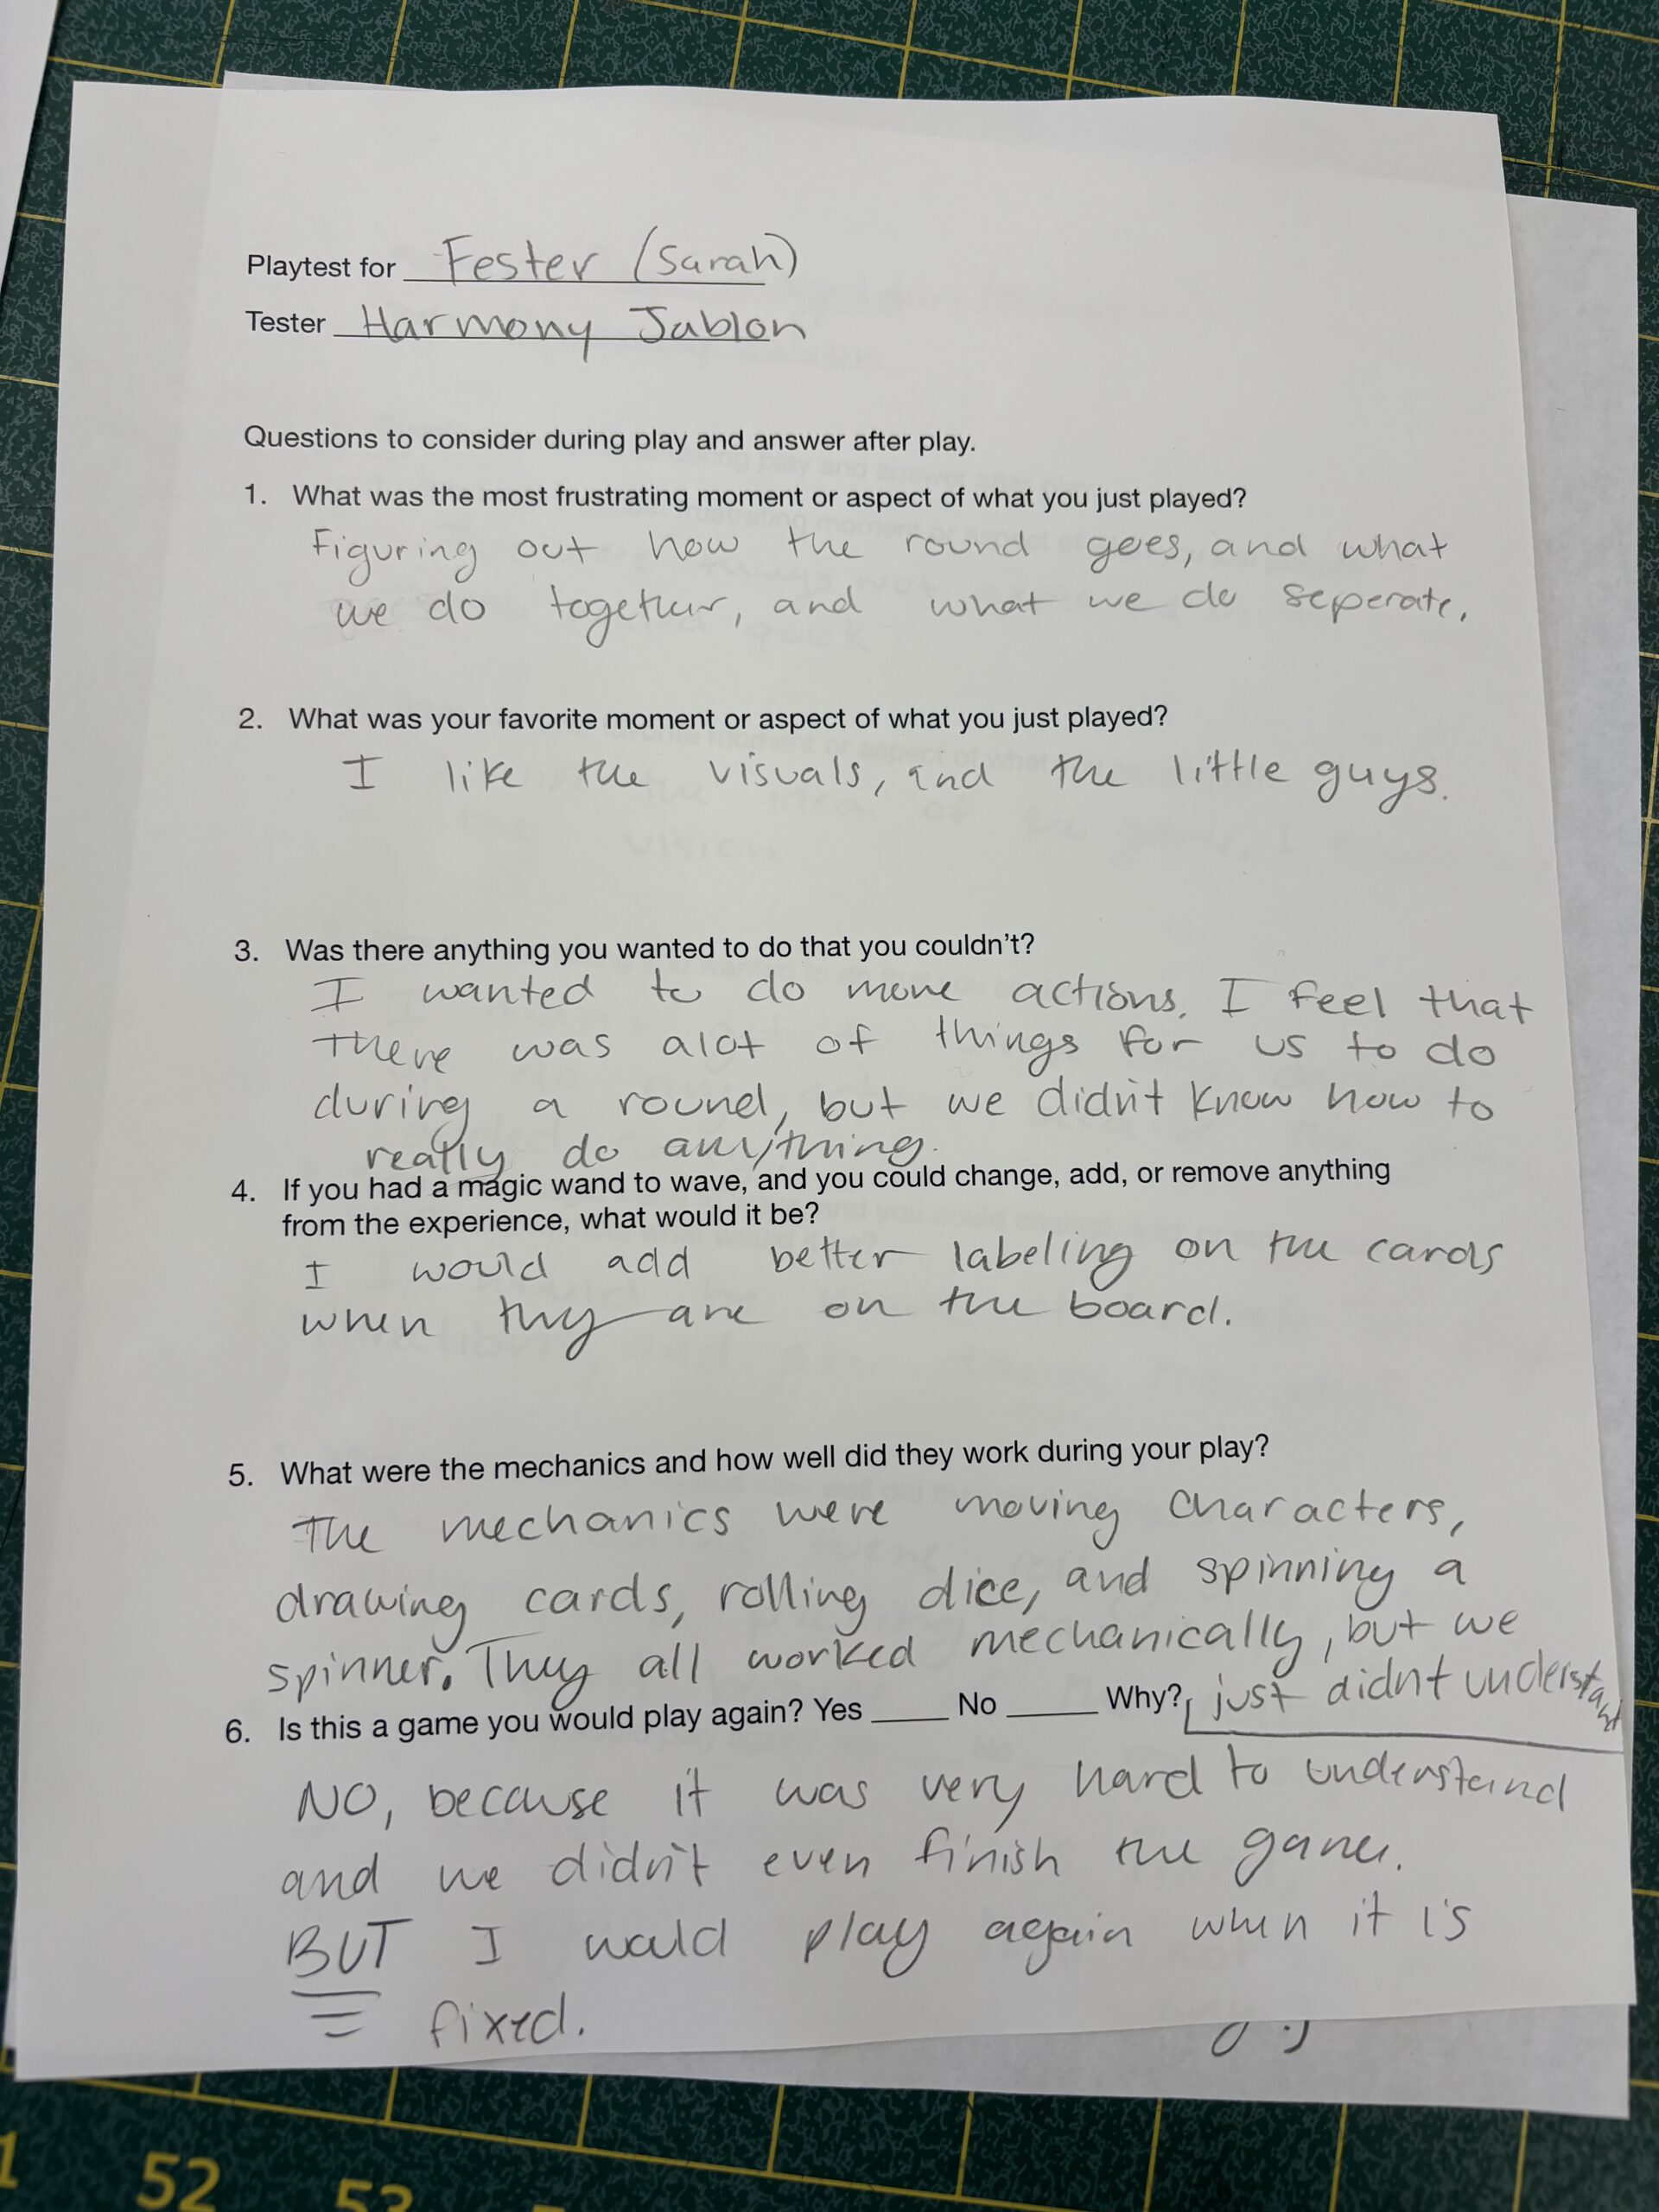 Playtest for Fester (Sarah)
Tester Harmony Jablon
Questions to consider during play and answer after play.
1. What was the most frustrating moment or aspect of what you just played?
Figuring out how the round goes, and what
we do together, and what we do seperate.
2. What was your favorite moment or aspect of what you just played?
I like the visuals, and the little guys.
3. Was there anything you wanted to do that you couldn't?
I wanted to do more actions. I feel that
there was alot of things for us to do
during a round, but we didn't know how to
really do anything.
4. If you had a magic wand to wave, and you could change, add, or remove anything
from the experience, what would it be?
I would add better labeling on the cards
when thy are on the board.
5. What were the mechanics and how well did they work during your play?
The mechanics were moving characters,
drawing cards, rolling dice, and spinning a
spinner. They all worked mechanically, but we
just didnt understand
6. Is this a game you would play again? Yes ____ No ____ Why?
NO, because it was very hard to understand
and we didn't even finish the game.
BUT I would play again when it is
fixed.
52
53